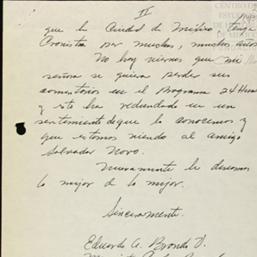 II
CENTRO DE
ESTU
DE
que la Ciudad de México tenga
Cronista por muchos, muchos años
No hay viernes que mi
señora se quiera perder sus
comentarios en el Programa 24 Horas
y ésto ha redundado en un
sentimiento de que lo conocemos y
que estamos viendo al amigo
Salvador Novo.
Nuevamente le deseamos
lo mejor de lo mejor.
Sinceramente.
Eduardo A. Brondo V.